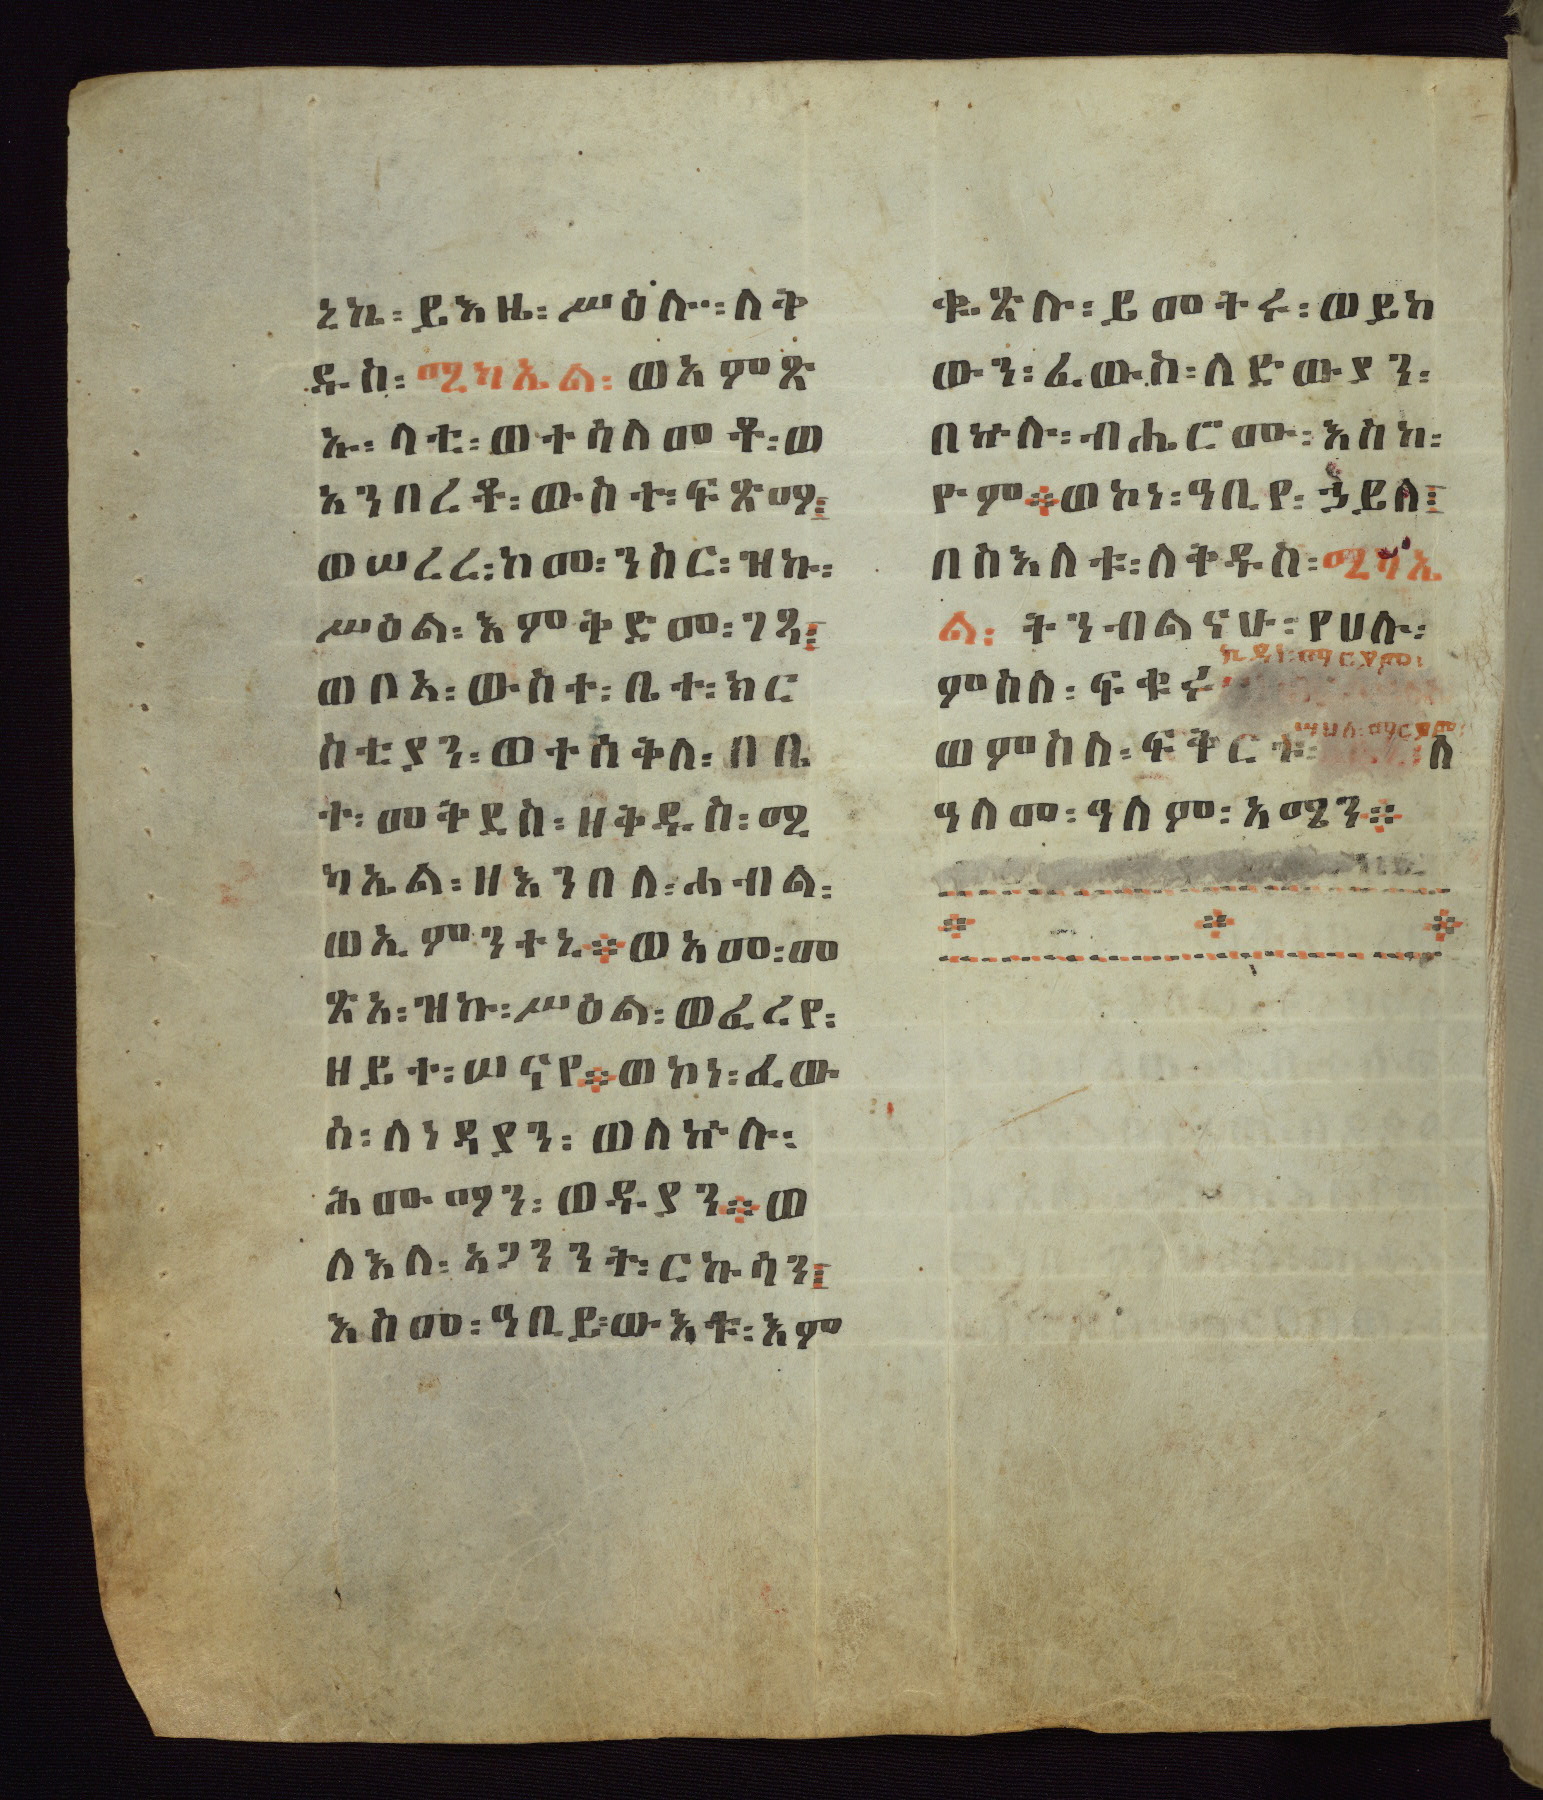 ኒኪ፡ ይእዜ፡ ሥዕሎ፡ ለቅ
ዱስ፡ ሚካኤል፡ ወአምጽ
ኡ፡ ላቲ፡ ወተሳለመቶ፡ ወ
አንበረቶ፡ ውስተ፡ ፍጽማ፤
ወሠረረ፡ ከመ፡ ንስር፡ ዝኩ፡
ሥዕል፡ እምቅድመ፡ ገጻ፤
ወቦአ፡ ውስተ፡ ቤተ፡ ክር
ስቲያን፡ ወተሰቅለ፡ በቤ
ተ፡ መቅደስ፡ ዘቅዱስ፡ ሚ
ካኤል፡ ዘእንበለ፡ ሐብል፡
ወኢምንተኒ፨ ወአመ፡ መ
ጽአ፡ ዝኩ፡ ሥዕል፡ ወፈረየ፡
ዘይተ፡ ሠናየ፨ ወኮነ፡ ፈው
ሰ፡ ለነዳያን፡ ወለኵሉ፡
ሕሙማን፡ ወዱያን፨ ወ
ለእለ፡ አጋንንት፡ ርኩሳን፤
እስመ፡ ዓቢይ፡ ውእቱ፡ እም
ቈጽሉ፡ ይመትሩ፡ ወይከ
ውን፡ ፈውስ፡ ለድውያን፡
በኵሉ፡ ብሔርሙ፡ እስከ፡
ዮም፨ ወኮነ፡ ዓቢየ፡ ኃይለ፤
በስእለቱ፡ ለቅዱስ፡ ሚካኤ
ል፡ ትንብልናሁ፡ የሀሉ፡
ኪዳነ፡ ማርያም፡
ምስለ፡ ፍቁሩ
ሣህለ፡ ማርያም፡
ወምስለ፡ ፍቅርት፡ ለ
ዓለመ፡ ዓለም፡ አሜን፨